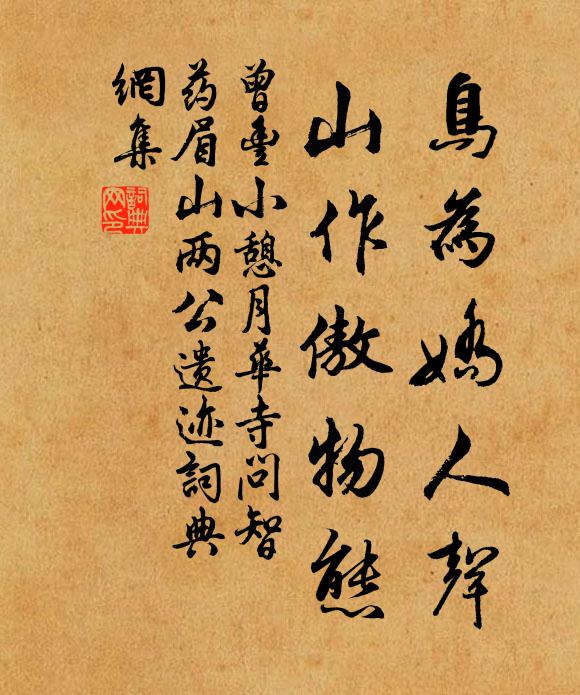 鳥為嬌人聲
山作傲物態
曾豐小憩月華寺問智
药眉山两公遗迹詞典
網集
詞典網印